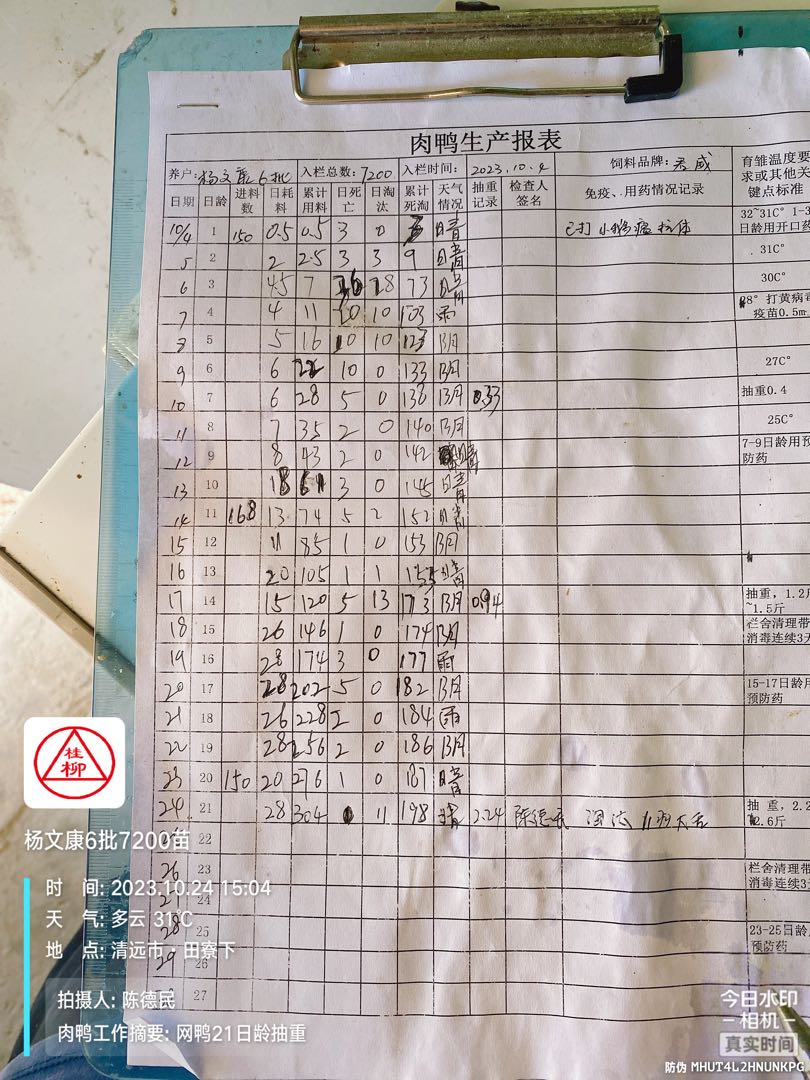 肉鸭生产报表
养户:杨文康6批 入栏总数:7200 入栏时间: 2023.10.4 饲料品牌: 育雏温度要
求或其他关
键点标准
日期 日龄 进料数 日耗料 累计用料 日死亡 日淘汰 累计死淘 天气情况 抽重记录 检查人签名 免疫、用药情况记录
10/4 1 150 0.5 0.5 3 0 晴 已打 抗体 32~31C° 1-3
日龄用开口药
5 2 2 2.5 3 3 9 晴 31C°
6 3 4.5 7 18 73 晴 30C°
7 4 4 11 20 10 103 雨 28° 打黄病毒
疫苗0.5m
8 5 5 16 10 10 123 阴
9 6 6 22 10 0 133 阴 27C°
10 7 6 28 5 0 138 阴 0.33 抽重0.4
11 8 7 35 2 0 140 阴 25C°
12 9 8 43 2 0 142 晴 7-9日龄用预
防药
13 10 18 61 3 0 145 晴
14 11 168 13 74 5 2 152 晴
15 12 11 85 1 0 153 阴
16 13 20 105 1 1 155 晴
17 14 15 120 5 13 173 阴 0.94 抽重，1.2斤
~1.5斤
18 15 26 146 1 0 174 阴 栏舍清理带
消毒连续3天
19 16 28 174 3 0 177 雨
20 17 28 202 5 0 182 阴 15-17日龄用
预防药
21 18 26 228 2 0 184 雨
22 19 28 256 2 0 186 阴
23 20 150 20 276 1 0 187 晴
24 21 28 304 0 11 198 晴 2.24 陈德民 淘汰 11 抽 重，2.2
2.6斤
22
26 23 栏舍清理带
消毒连续3天
24
28 25 23-25日龄
预防药
29 26
27
桂
柳
杨文康6批7200苗
时 间: 2023.10.24 15:04
天 气: 多云 31℃
地 点: 清远市·田寮下
拍摄人: 陈德民
肉鸭工作摘要: 网鸭21日龄抽重
今日水印
相机
真实时间
防伪 MHUT4L2HNUNKPG